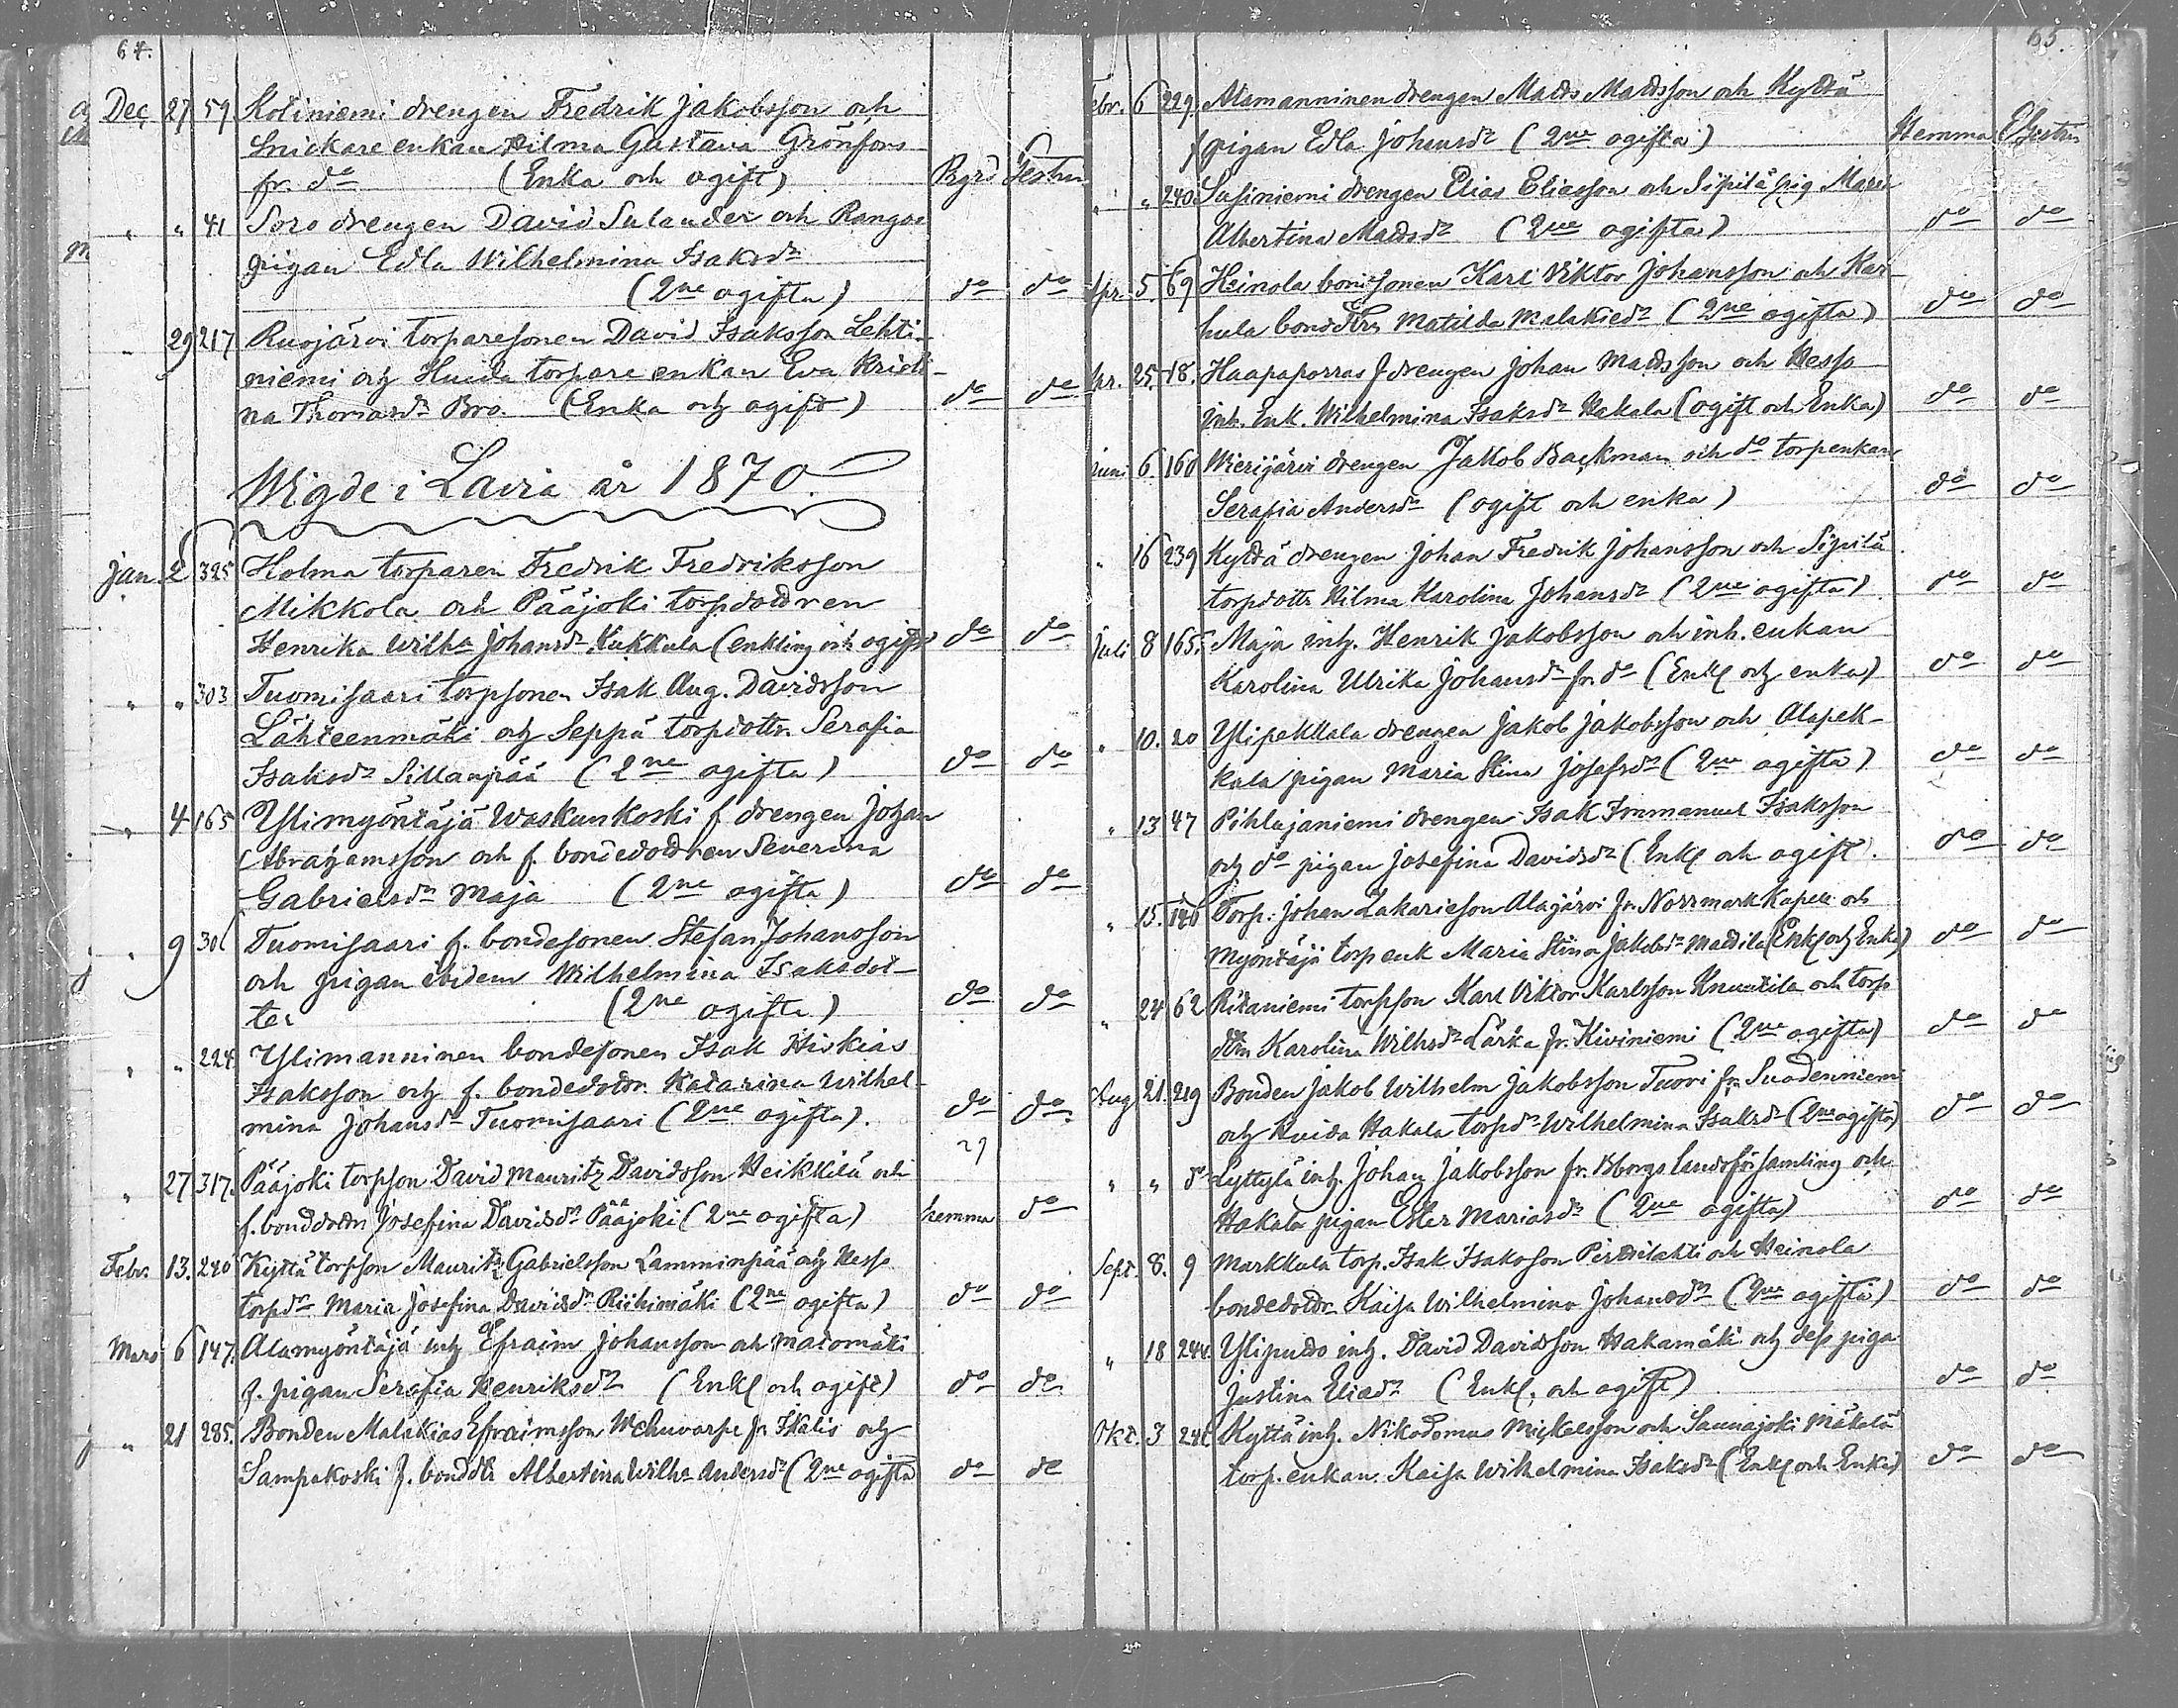 64.
Dec 27 59 Kotiniemi drengen Fredrik Jakobsson och
Snickare enkan Hilma Gustava Grönfors
fr. do (Enka och ogift) Prgrd Gestrin
" " 41 Soro drengen David Sulander och Rangos
pigan Edla Wilhelmina Isaksdr
(2ne ogifta) do do
" 29 217 Ruojärvi torparesonen David Isaksson Lehti-
niemi och Huida torpare enkan Eva Kristi-
na Thomasdr Bro. (Enka och ogift) do do
Wigde i Lavia år 1870.
Jan. 2 325 Holma torparen Fredrik Fredriksson
Mikkola och Pääjoki torpdottren
Henrika Wilha Johansdr Kukkula (enkling och ogift) do do
" " 303 Tuomisaari torpsonen Isak Aug. Davidsson
Lähteenmäki och Seppä torpdottr. Serafia
Isaksdr Sillanpää (2ne ogifta) do do
" 4 165 Ylimyöntäjä Waskunkoski f. drengen Johan
Abrahamsson och f. bondedottren Severina
Gabrielsdr Maja (2ne ogifta) do do
" 9 301 Tuomisaari f. bondesonen Stefan Johansson
och pigan ibidem Wilhelmina Isaksdot-
ter (2ne ogifta) do do
" " 224 Ylimanninen bondesonen Isak Hiskias
Isaksson och f. bondedottr. Katarina Wilhel-
mina Johansdr Tuomisaari (2ne ogifta). do do
" 27 317. Pääjoki torpson David Mauritz Davidsson Heikkilä och
f. bonddottr Josefina Davidsdr Pääjoki (2ne ogifta) hemma do
Febr. 13. 240 Kyttä torpson Mauritz Gabrielsson Lamminpää och Hesso
torpdr Maria Josefina Davidsdr Riihimäki (2ne ogifta) do do
Mars 6 147. Alamyöntäjä inh Efraim Johansson och Matomäki
f. pigan Serafia Henriksdr (Enkl och ogift) do do
" 21 285. Bonden Malakias Efraimsson Wehuvarpe fr Ikalis och
Sampakoski f. bonddtr Albertina Wilha Andersdr (2ne ogifta do do
65.
Febr. 6 229. Alamanninen drengen Matts Mattsson och Kyttä
f pigan Edla Johansdr (2ne ogifta) Hemma E Gestrin
" " 240 Susiniemi drengen Elias Eliasson och Sipilä pig. Maria
Albertina Mattsdr (2ne ogifta) do do
Apr. 5. 69 Heinola bondsonen Karl Viktor Johansson och Kar-
hula bonddttr Matilda Malakiedr (2ne ogifta) do do
Apr. 25. 18. Haapaporras f drengen Johan Mattsson och Hesso
inh. Enk. Wilhelmina Isaksdr Hakala (ogift och Enka) do do
Juni 6. 160 Wierijärvi drengen Jakob Backman och do torpenkan
Serafia Andersdr (ogift och enka) do do
" 16 239 Kyttä drengen Johan Fredrik Johansson och Sipilä
torpdottr Hilma Karolina Johansdr (2ne ogifta) do do
Juli 8 165. Maja inh. Henrik Jakobsson och inh. enkan
Karolina Ulrika Johansdr fr. do (Enkl och enka) do do
" 10. 20 Ylipekkala drengen Jakob Jakobsson och Alapek-
kala pigan Maria Stina Josefsdr (2ne ogifta) do do
" 13 47 Pihlajaniemi drengen Isak Immanuel Isaksson
och do pigan Josefina Davidsdr (Enkl och ogift). do do
" 15. 146 Torp. Johan Zakariesson Alajärvi fr. Norrmark Kapell och
Myöntäjä torp enk Maria Stina Jakobsdr Mattila (Enkl och Enka) do do
" 24 62 Ritaniemi torpson Karl Viktor Karlsson Knuutila och torp
dttrn Karolina Wilhsdr Lärka fr. Kiviniemi (2ne ogifta) do do
Aug 21. 219 Bonden Jakob Wilhelm Jakobsson Tuori fr. Suodenniemi
och Huida Hakala torpdr Wilhelmina Isaksdr (2ne ogifta) do do
" " do Lyttylä inh. Johan Jakobsson fr. Bborgs Landsförsamling och
Hakala pigan Ester Mariasdr (2ne ogifta) do do
Sept. 8. 9 Markkula torp. Isak Isaksson Pirttilahti och Heinola
bondedottr. Kaisa Wilhelmina Johansdr (2ne ogifta) do do
" 18 244. Yliputto inh. David Davidsson Hakamäki och dess piga
Justina Eliedr (Enkl. och ogift) do do
Okt. 3 241. Kyttä inh. Nikodemus Mickelsson och Saunajoki Mäkelä
torp. enkan Kaisa Wilhelmina Isaksdr (Enkl och Enka) do do